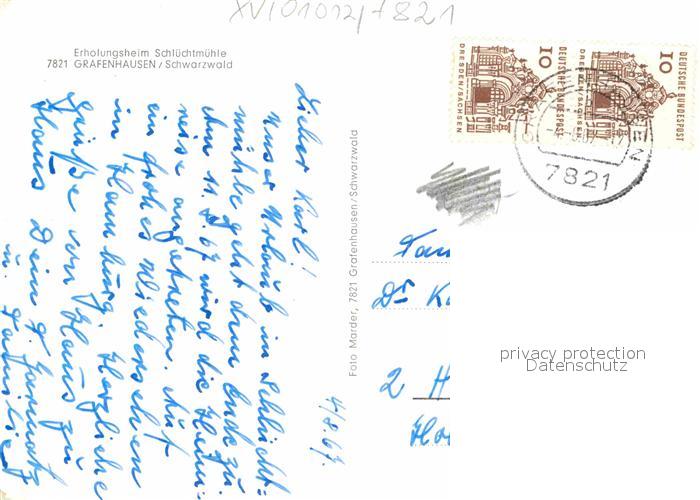 XV/01012/7821
Erholungsheim Schlüchtmühle
7821 GRAFENHAUSEN/Schwarzwald
4/8.67.
Lieber Karl!
unser Urlaub in Schlücht=
mühle geht dem Ende zu
Am 11.8.67 wird die Heim=
reise angetreten. Auf
ein frohes Wiedersehen
in Hamburg. Herzliche
Grüße von Haus zu
Haus Dein
u. Familie
Foto Marder, 7821 Grafenhausen/Schwarzwald
DEUTSCHE BUNDESPOST
10
DRESDEN/SACHSEN
DEUTSCHE BUNDESPOST
10
DRESDEN/SACHSEN
7821
Fam
Dr K
2 H
privacy protection
Datenschutz